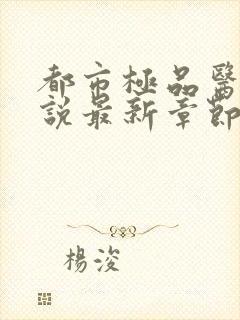 都市極品醫
說最新章節
楊浚